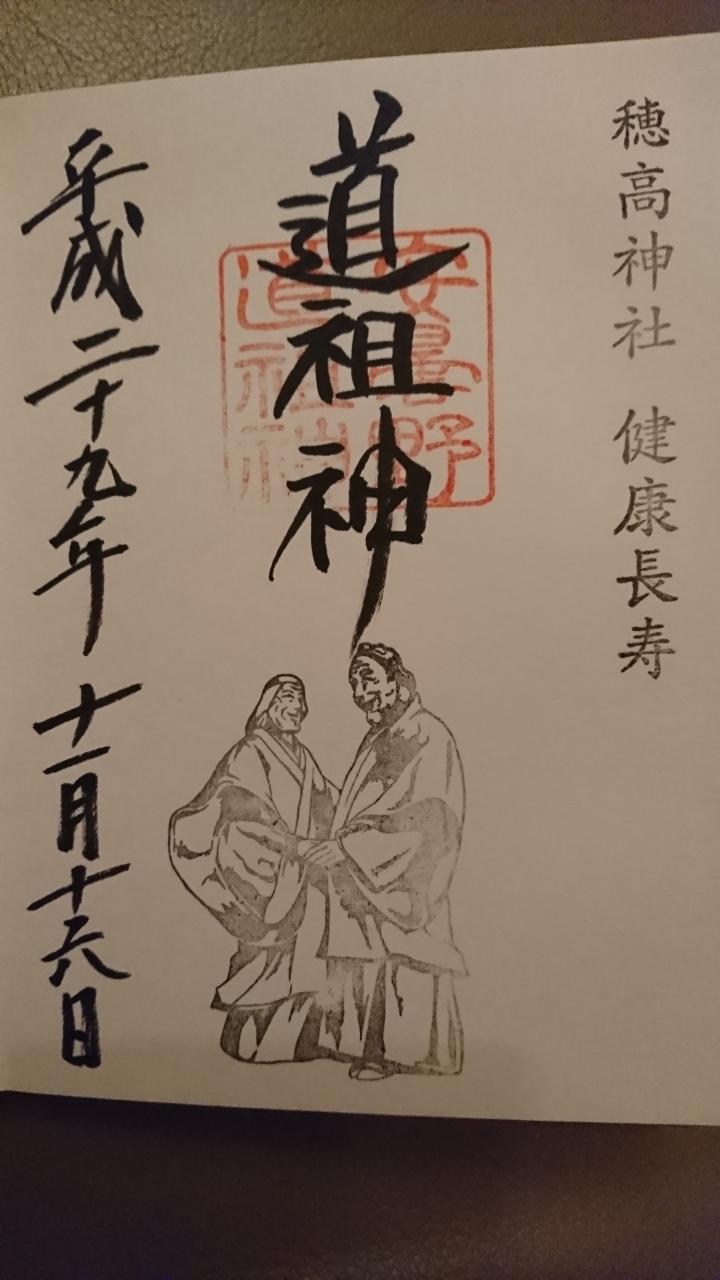 穂高神社 健康長寿
道祖神
安曇野
道祖神
平成二十九年 十一月十六日